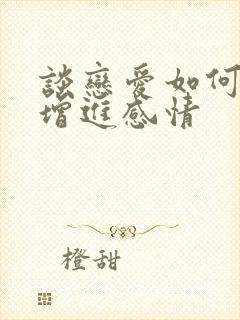 談戀愛如何
增進感情
橙甜